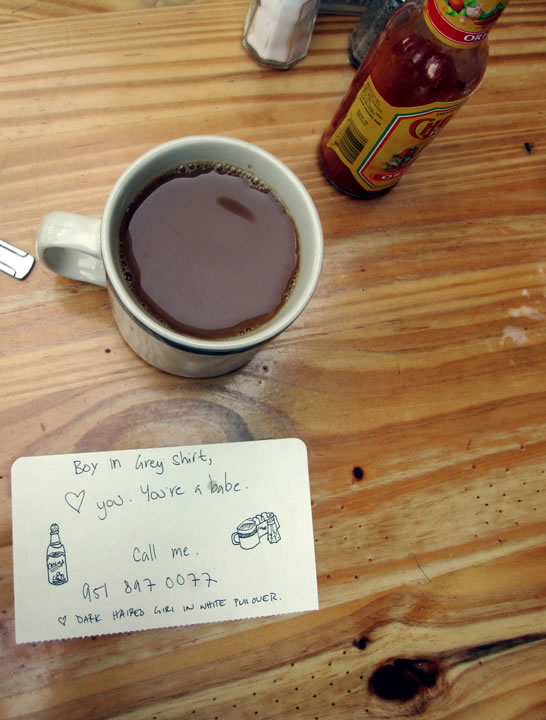 Boy In Grey Shirt,
♡ you. You're a babe.
Call me.
951 897 0077
♡ DARK HAIRED GIRL IN WHITE PULLOVER.